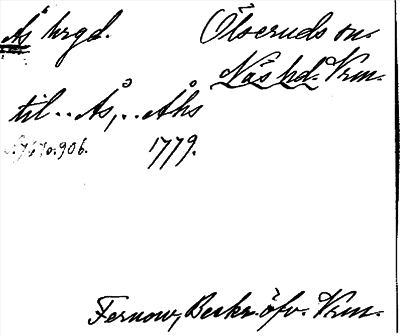 Ås hrgd. Ölseruds sn.
Näs hd. Vrm.
til.. Ås,.. Åhs
s. 767 o. 906. 1779.
Fernow, Beskr. öfv. Vrm.